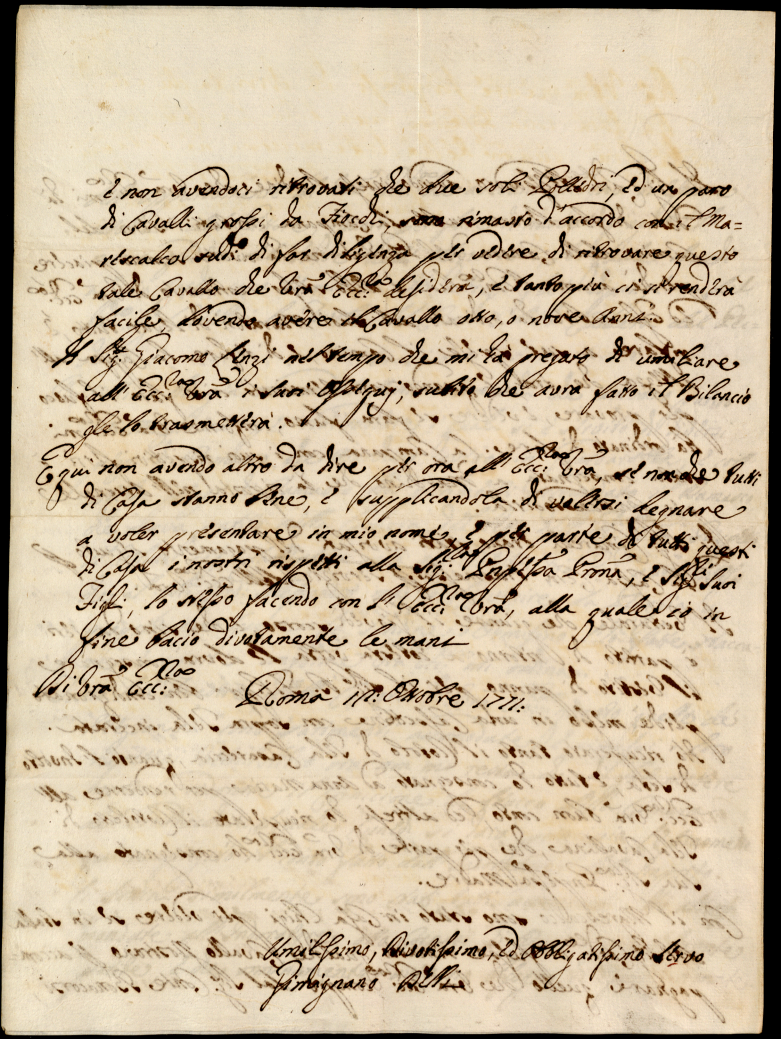 e non avendoci ritrovati che due soli Polledri, ed un paro
di Cavalli grossi da Fiochi, sono rimasto d'accordo con il Ma=
rescalco di far diligenza per vedere di ritrovare questo
tale Cavallo che Vrã Eccza desidera, e tanto più ci si renderà
facile dovendo avere il Cavallo otto, o nove Anni.
Il Sigr Giacomo nel tempo che mi ha pregato di umiliare
all' Eccza Vrã i suoi Ossequj, subito che avrà fatto il Bilancio
glie lo trasmetterà.
E qui non avendo altro da dire per ora all' Eccza Vrã, se non che tutti
di Casa stanno bene, e supplicandola di volersi degnare
a voler presentare in mio nome, e per parte di tutti questi
di Casa i nostri rispetti alla Sigra Prñpessa Pronã, e Sigri suoi
Figli, lo stesso facendo con l' Eccza Vrã, alla quale io in
fine bacio divotamente le mani
Di Vrã Eccza Roma Ottobre 1771.
Umilissimo, Divotissimo, ed Obbligatissimo Servo
Gimignano